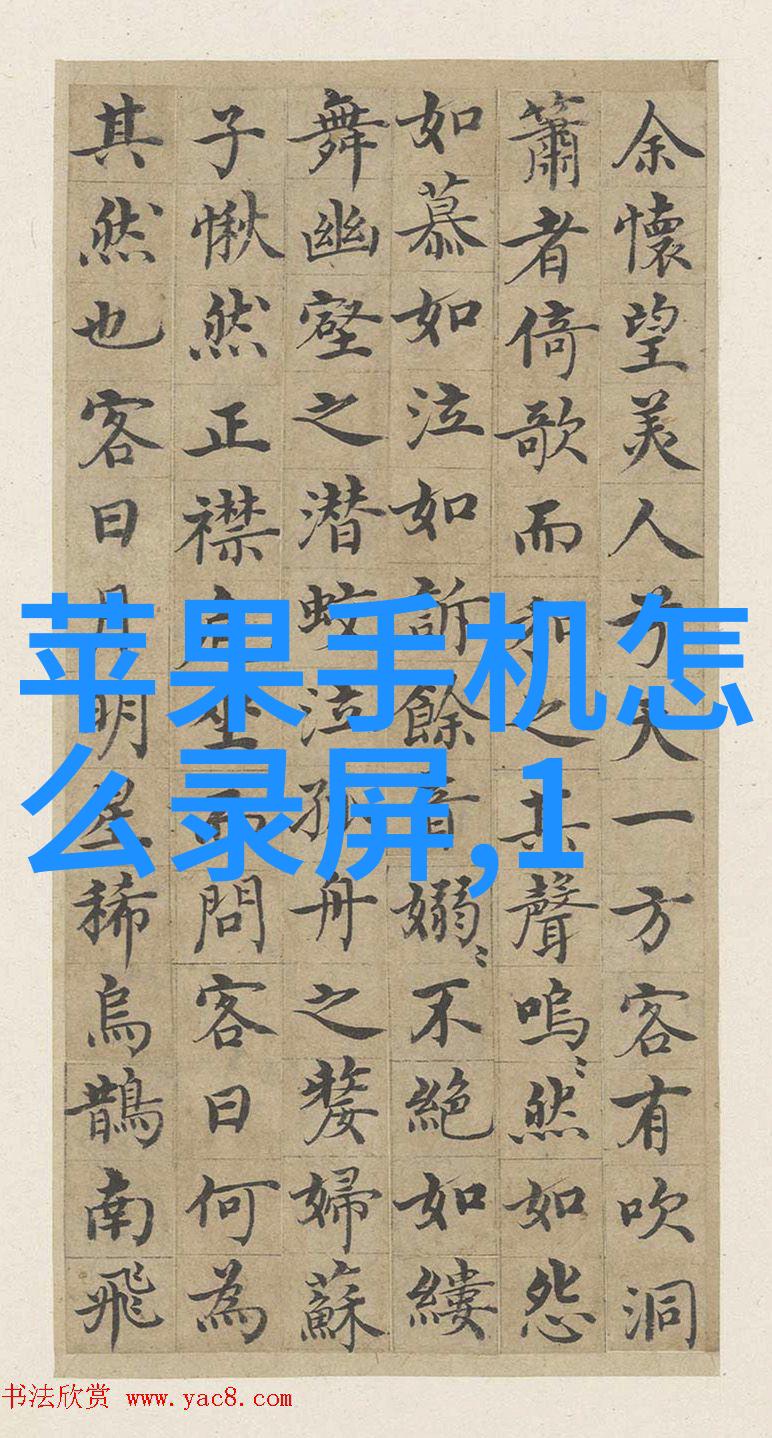 余懷望美人兮天一方客有吹洞
簫者倚歌而和之其聲嗚〻然如怨
如慕如泣如訴餘音嫋〻不絕如縷
舞幽壑之潜蛟泣孤舟之嫠婦蘇
子愀然正襟危坐而問客曰何為
其然也客曰月明星稀烏鵲南飛
苹果手机怎
么录屏,1
书法欣赏 www.yac8.com